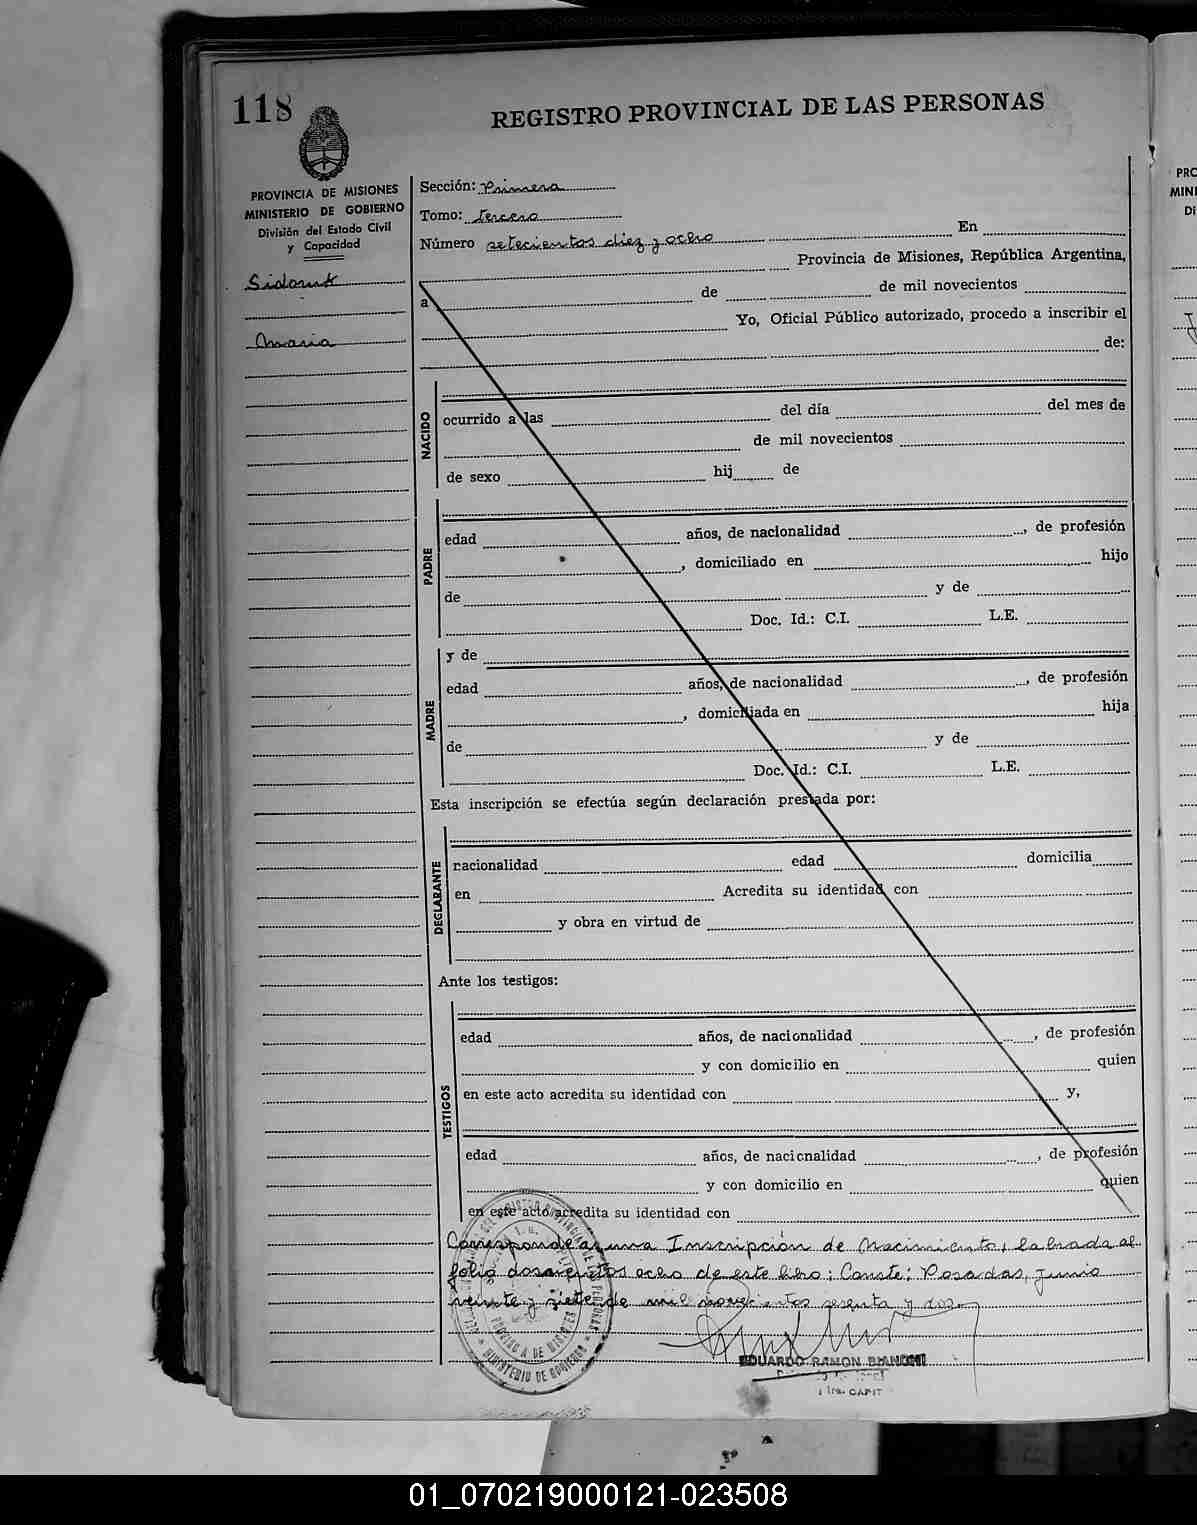 118
REGISTRO PROVINCIAL DE LAS PERSONAS
PROVINCIA DE MISIONES
MINISTERIO DE GOBIERNO
División del Estado Civil
y Capacidad
Maria
Sección: Primera
Tomo: tercero
Número setecientos diez y ocho En
Provincia de Misiones, República Argentina,
a de de mil novecientos
Yo, Oficial Público autorizado, procedo a inscribir el
de:
NACIDO
ocurrido a las del día del mes de
de mil novecientos
de sexo hij de
PADRE
edad años, de nacionalidad , de profesión
, domiciliado en hijo
de y de
Doc. Id.: C.I. L.E.
MADRE
y de
edad años, de nacionalidad , de profesión
, domiciliada en hija
de y de
Doc. Id.: C.I. L.E.
Esta inscripción se efectúa según declaración prestada por:
DECLARANTE
nacionalidad edad domicilia
en Acredita su identidad con
y obra en virtud de
Ante los testigos:
TESTIGOS
edad años, de nacionalidad , de profesión
y con domicilio en quien
en este acto acredita su identidad con y,
edad años, de nacionalidad , de profesión
y con domicilio en quien
en este acto acredita su identidad con
Corresponde a una Inscripción de Nacimiento, labrada al
folio doscientos ocho de este libro: Conste: Posadas, junio
veinte y siete de mil novecientos sesenta y dos
PROVINCIA DE MISIONES
MINISTERIO DE GOBIERNO
EDUARDO RAMON BIANCHI
01_070219000121-023508